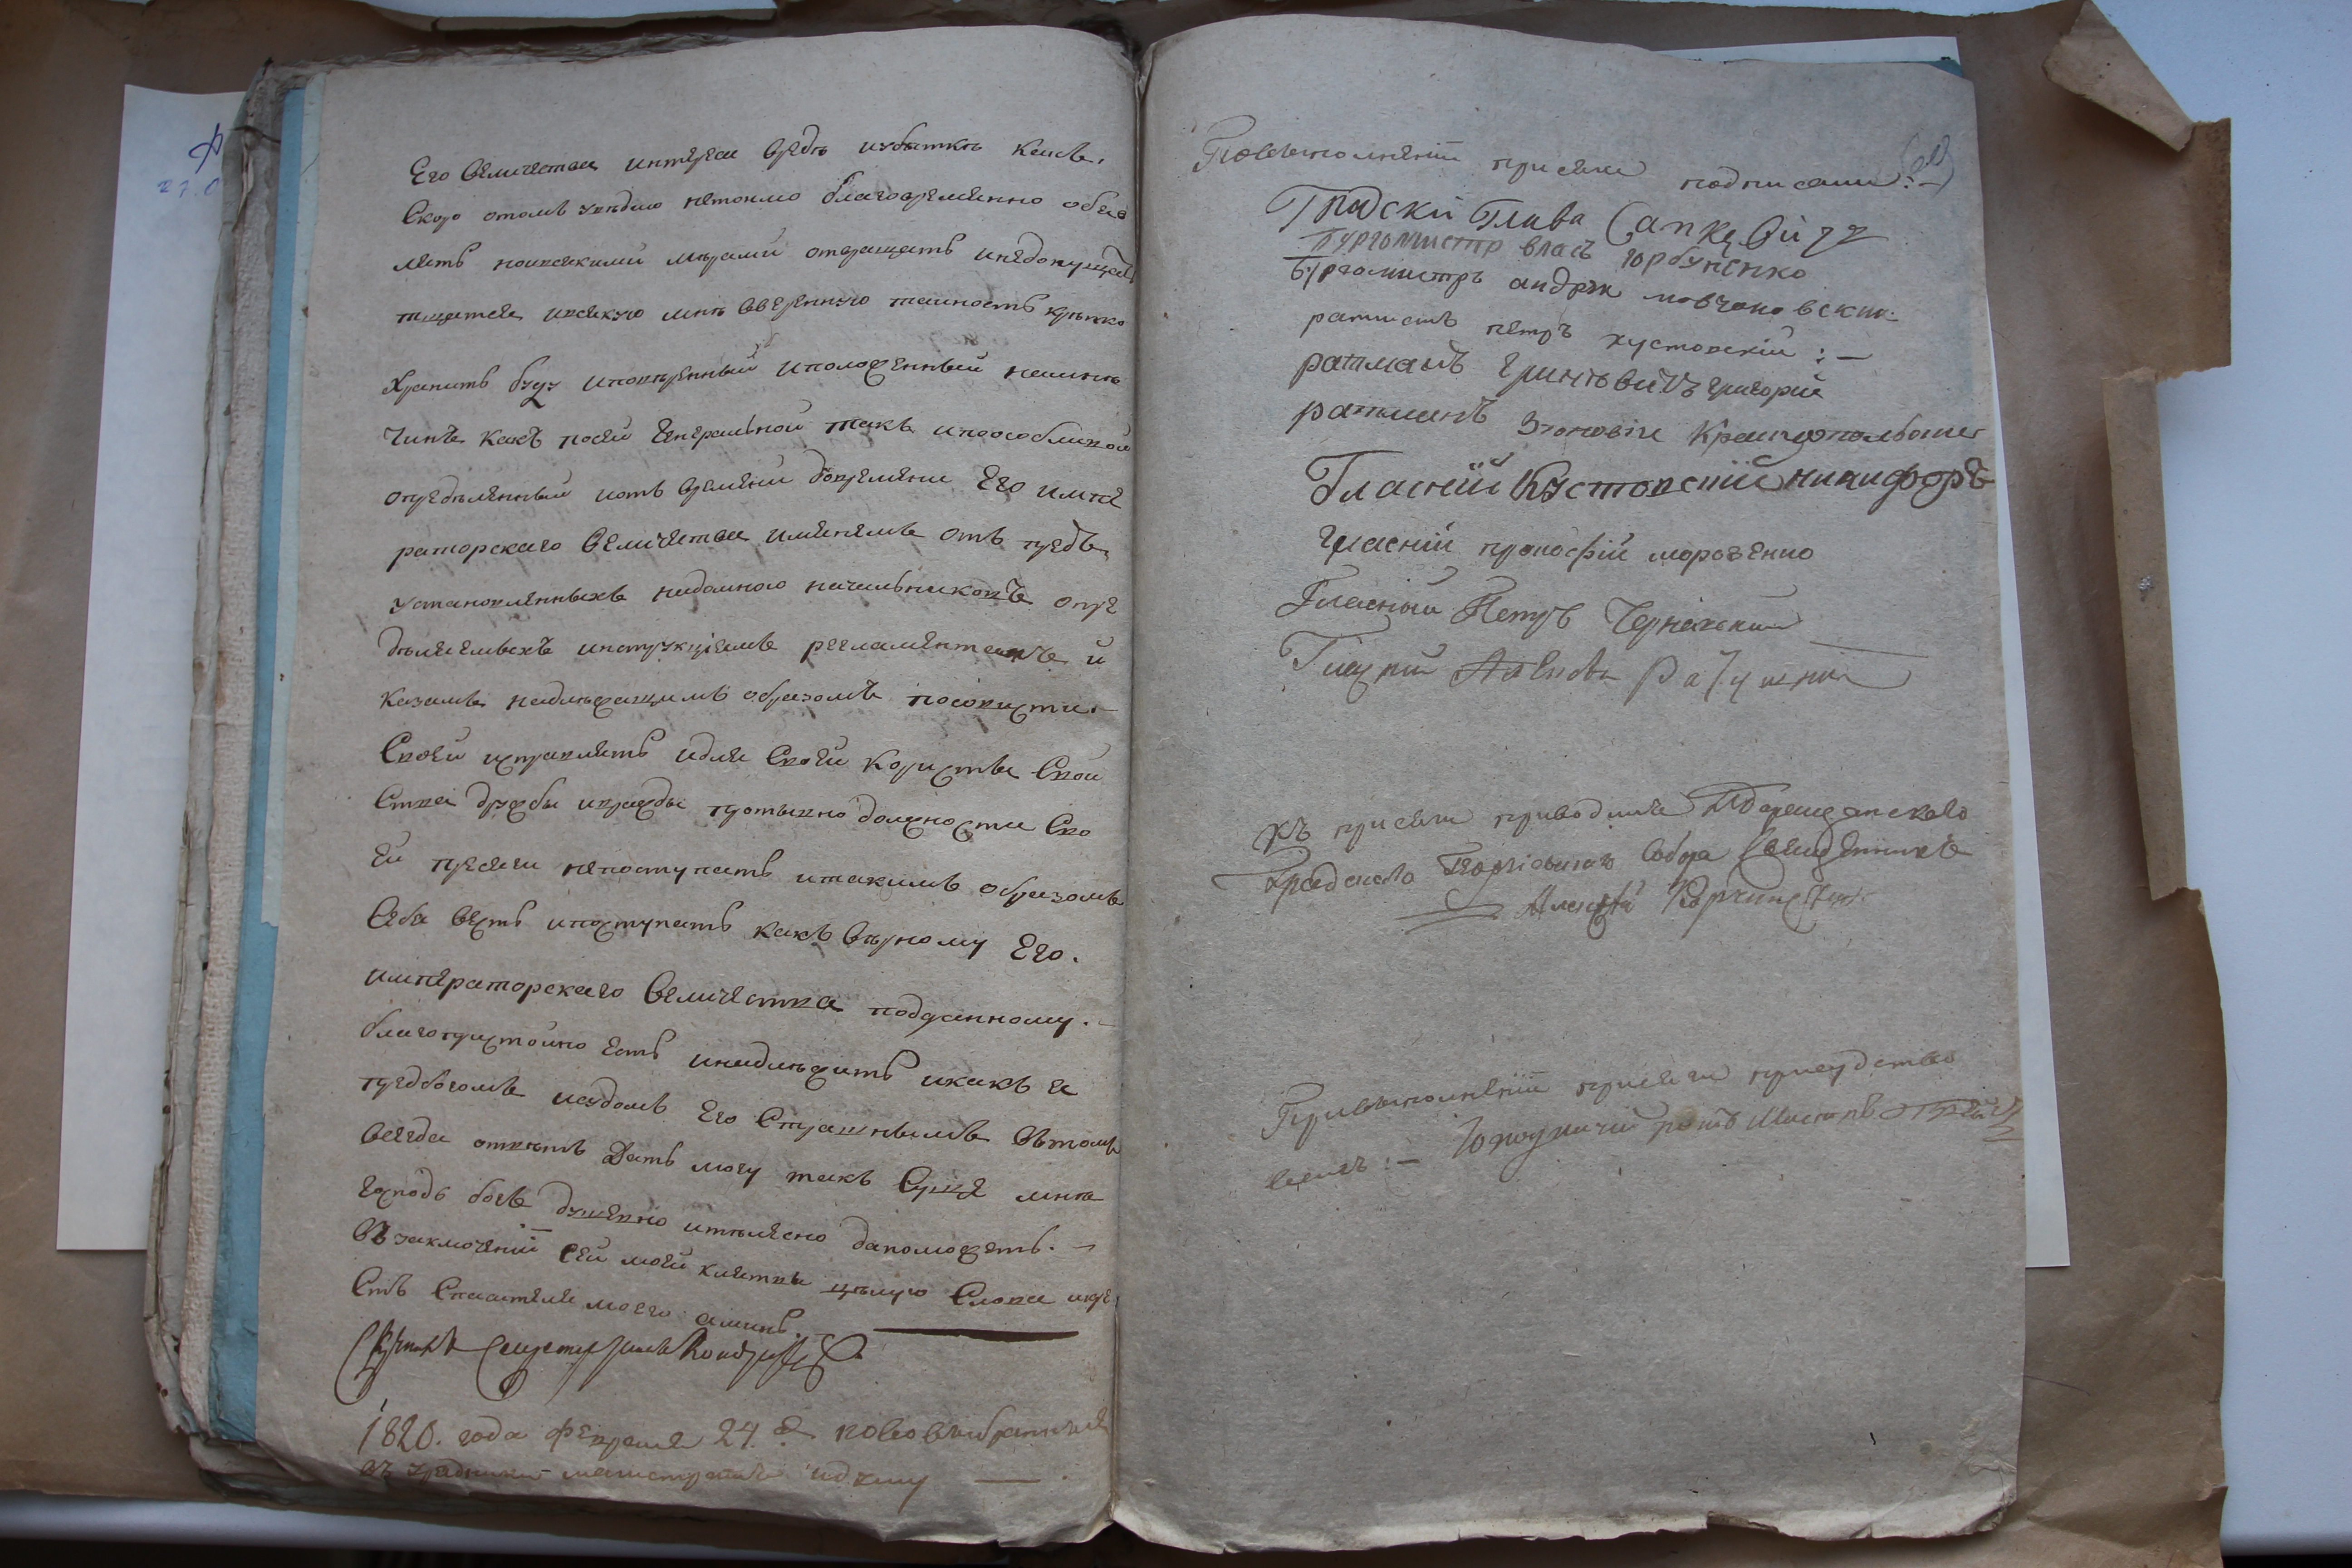 Его Величества интереса вредѣ иубыткѣ какъ
Скоро отомъ увѣдаю нетокмо благовременно обяв
лять ноивсякими мѣрами отвращать инедопущать
тщатся ивсякую мнѣ вверенную таиность крѣпко
Хранить буду иповѣренный иположенный намнѣ
Чинъ какъ посеи Генеральной такъ ипоособливой
определенный иотъ времени довремени Его импе
раторскаго Величества имянемъ отъ пред
установленныхъ надомною начальниковъ опре
дѣляемымъ инструкціямъ регламентамъ и
казамъ надлежащимъ образомъ посовисти
Своеи исправлять идля Своеи користы Свои
Ства дружбы ивражды противно должности Сво
Еи присяги непоступать итакимъ образомъ
Себя весть ипоступать какъ Вѣрному Его
императорскаго Величества подданному.
благопристоино Есть инадлежитъ икакъ я
предбогомъ исудомъ Его Страшнымъ Втомъ
всегда отвѣтъ Дать могу такъ Суще мнѣ
Господь богъ душевно ителесно даможетъ. —
Въ заключеніи сеи моеи клятвы цѣлую Слова икре
Стъ Спасителя моего аминь.
1820. года февраля 24. д. нововыбранныя
въ градскии магистратъ идуму —
Повыполненіи присяги подписали: —
Градскій Глава
Бургомистр власъ горбуненко
бургомистръ андрѣи мовчановскии
ратманъ петръ хустовскій : —
ратманъ григорий
ратманъ
Гласній Кустовский никифоръ
гласній прокофій морозенко
Гласный Петръ Чернявский
Гласний
Къ присяги приводилъ
Градскаго Георгіевскаго Собора Священникъ
Алексѣй
Привыполненіи присяги присудство
валъ : —